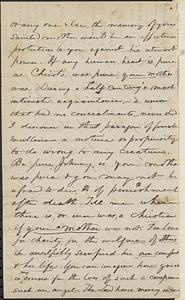 or any one else, the memory of your
Sainted mother would be an effectual
protection to you against his utmost
power. If any human heart is pure
as Christ's was pure, your mother
was. During a half century's most
intimate acquaintance, a union
that had no concealments, never did
I discover in that paragon of female
excellence a motive or propensity
to do wrong to any creature.
Be pure, Johnny, as your mother
was pure & you may not be
afraid to die, & of punishment
after death. Tell me where
there is, or ever was, a Christian
if your mother was not. For love
for charity, for the welfare of others
she unselfishly sacrificed her own comfort
& her life. You can imagine how great
is sorrow for the loss of such a companion
such an angel. The Lord have mercy on